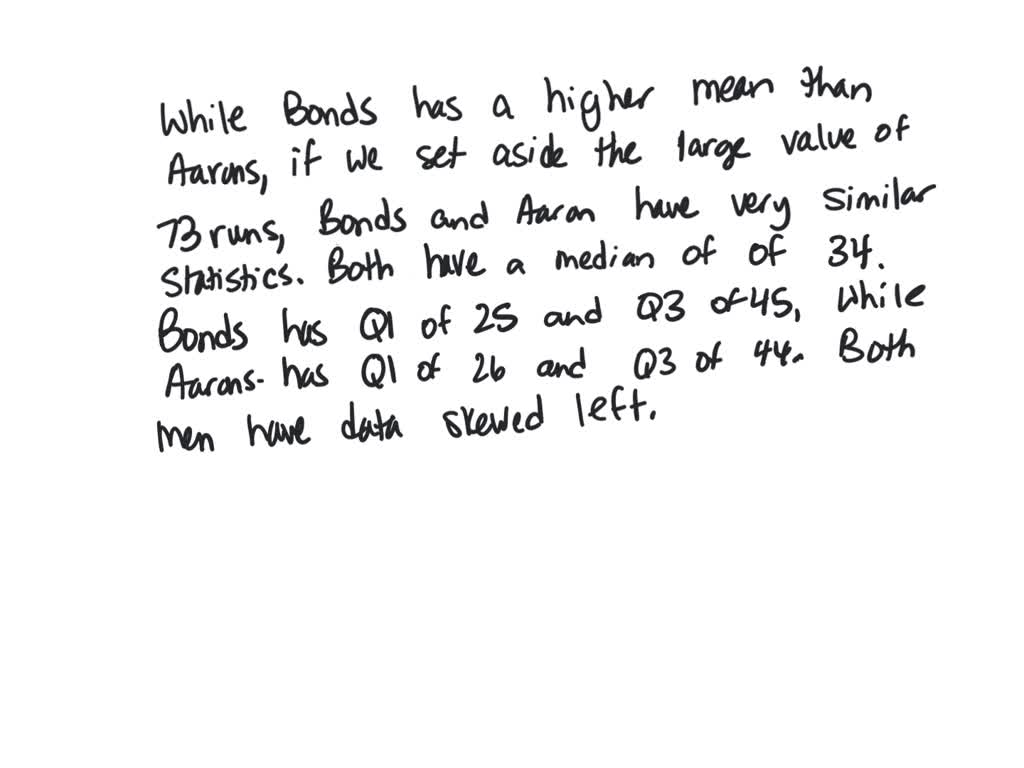 While Bonds has a higher mean than
Aarons, if we set aside the large value of
73 runs, Bonds and Aaron have very similar
statistics. Both have a median of of 34.
Bonds has Q1 of 25 and Q3 of 45, while
Aarons- has Q1 of 26 and Q3 of 44. Both
men have data skewed left.